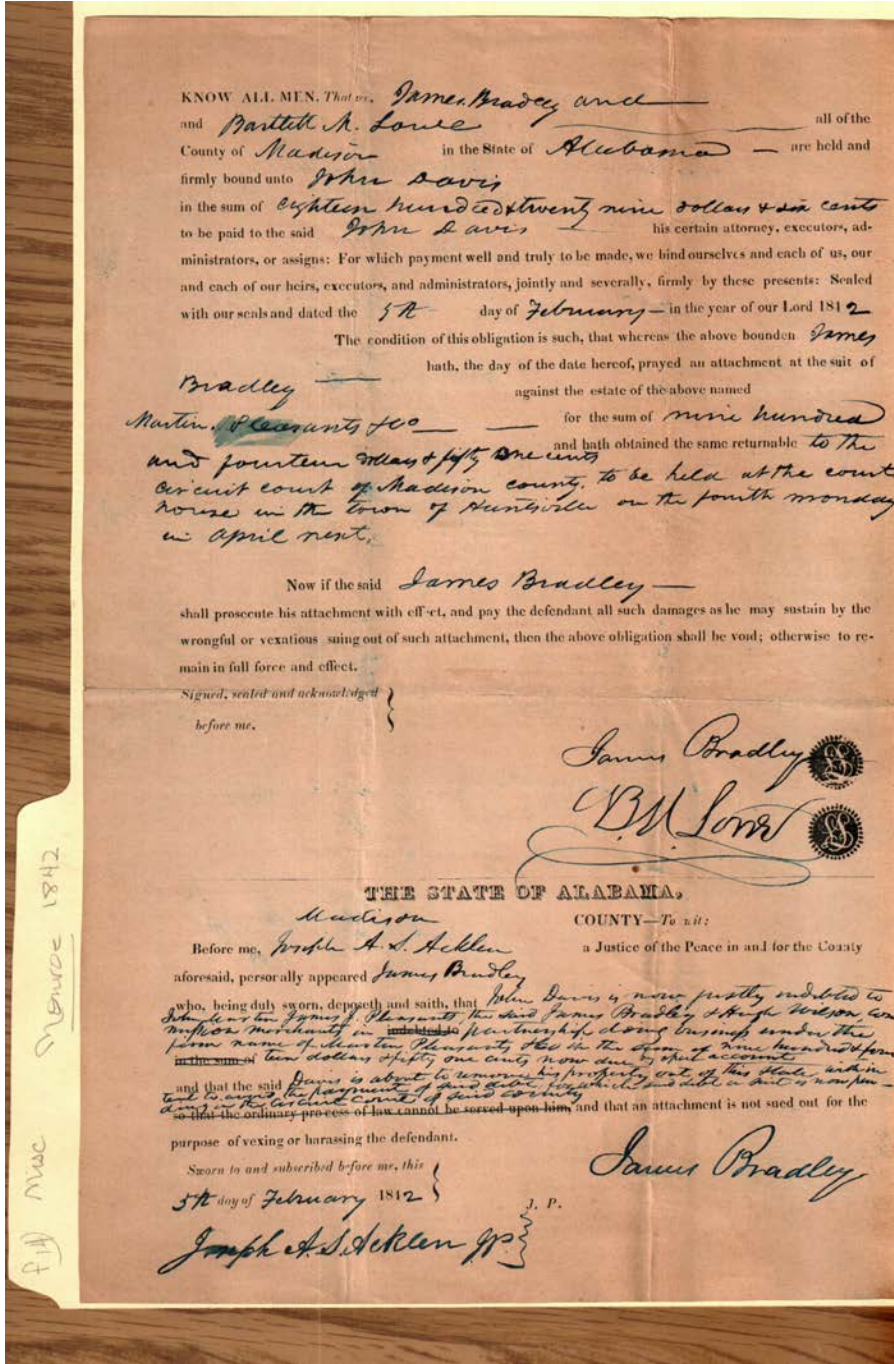 KNOW ALL MEN, That we, James Bradley and
and Bartlett M. Lowe all of the
County of Madison in the State of Alabama — are held and
firmly bound unto John Davis
in the sum of eighteen hundred & twenty nine dollars & six cents
to be paid to the said John Davis — his certain attorney, executors, ad-
ministrators, or assigns: For which payment well and truly to be made, we bind ourselves and each of us, our
and each of our heirs, executors, and administrators, jointly and severally, firmly by these presents: Sealed
with our seals and dated the 5th day of February — in the year of our Lord 1842
The condition of this obligation is such, that whereas the above bounden James
Bradley — hath, the day of the date hereof, prayed an attachment at the suit of
Martin, Pleasants & Co — — against the estate of the above named
for the sum of nine hundred
and fourteen dollars & fifty one cents and hath obtained the same returnable to the
circuit court of Madison county, to be held at the court
house in the town of Huntsville on the fourth monday
in April next,
Now if the said James Bradley —
shall prosecute his attachment with effect, and pay the defendant all such damages as he may sustain by the
wrongful or vexatious suing out of such attachment, then the above obligation shall be void; otherwise to re-
main in full force and effect.
Signed, sealed and acknowledged
before me,
James Bradley
B M Lowe
THE STATE OF ALABAMA,
Madison COUNTY—To wit:
Before me, Joseph A. S. Acklen a Justice of the Peace in and for the County
aforesaid, personally appeared James Bradley
who, being duly sworn, deposeth and saith, that John Davis is now justly indebted to
John Martin James J. Pleasants the said James Bradley & Hugh Wilson, com
mission merchants in indebted to partnership doing business under the
firm name of Martin Pleasants & Co in the sum of nine hundred & four
in the sum of teen dollars & fifty one cents now due by open account
and that the said Davis is about to remove his property out of this state with in
tent to avoid the payment of said debt for which said debt a suit is now pen-
ding in the circuit court of said county
so that the ordinary process of law cannot be served upon him, and that an attachment is not sued out for the
purpose of vexing or harassing the defendant.
Sworn to and subscribed before me, this
5th day of February 1842
James Bradley
J. P.
Joseph A. S. Acklen J.P.
Misc Monroe 1842